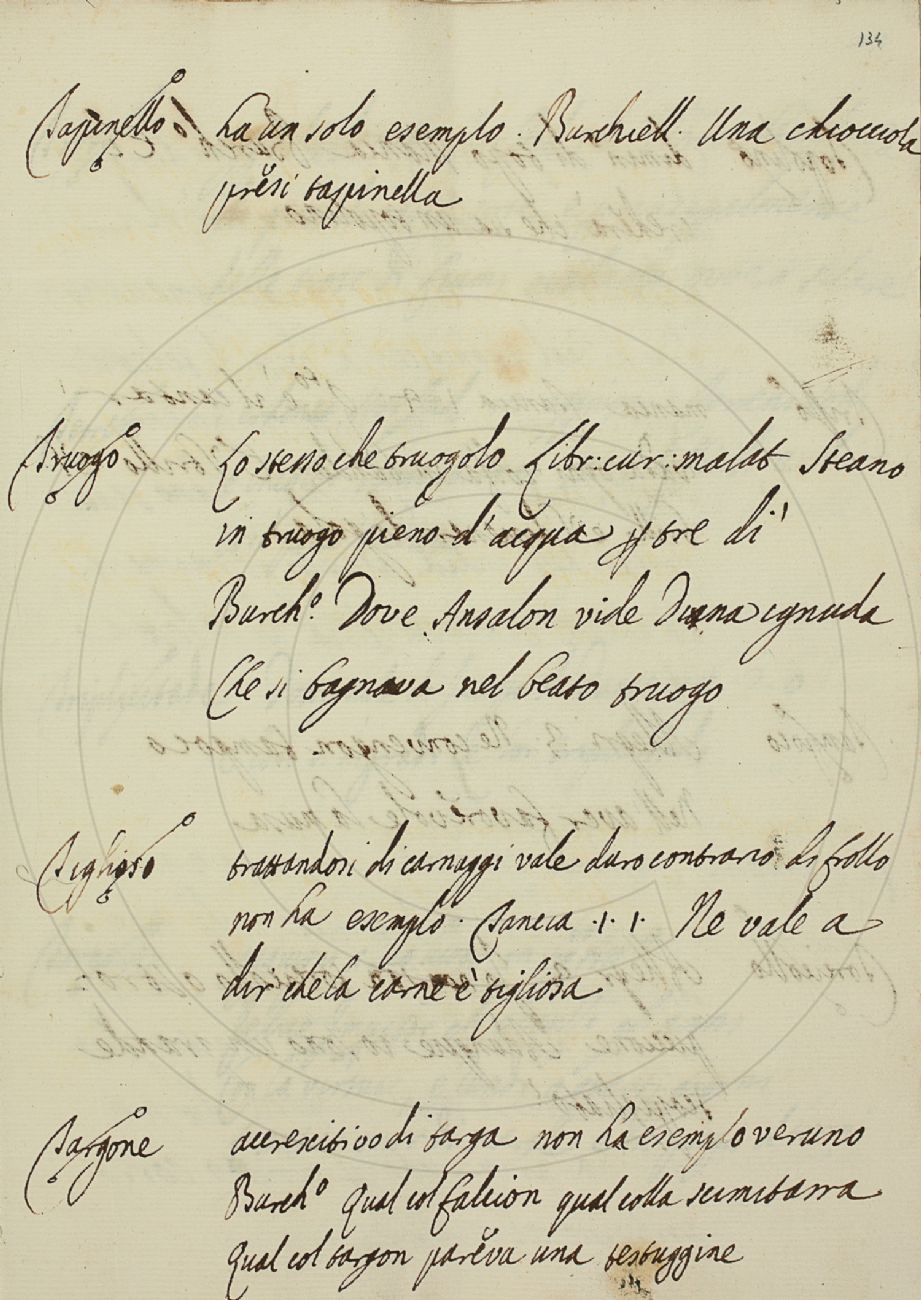 134
Tapinello ha un solo esemplo. Burchiell. Una chiocciola
presi tappinella
Truogo Lo stesso che truogolo Libr: cur: malat Steano
in truogo pieno d'acqua p tre di'
Burchº. Dove Ansalon vide Diana ignuda
Che si bagnava nel beato truogo
Tiglioso trattandosi di carnaggi vale duro contrario di frollo
non ha esemplo. .1. 1. Ne vale a
dir che la carne è tigliosa
Targone accrescitivo di targa non ha esemplo veruno
Burchº Qual col falcion qual colla scimitarra
Qual col targon pareva una testuggine